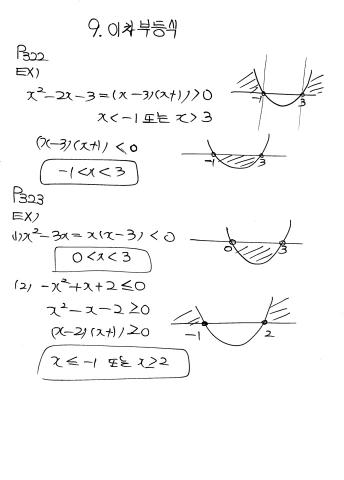 9. 이차부등식
P322
EX)
x²-2x-3=(x-3)(x+1)>0
x<-1 또는 x>3
-1 3
(x-3)(x+1)<0
-1<x<3
-1 3
P323
EX)
(1) x²-3x=x(x-3)<0
0<x<3
0 3
(2) -x²+x+2≤0
x²-x-2≥0
(x-2)(x+1)≥0
x≤-1 또는 x≥2
-1 2